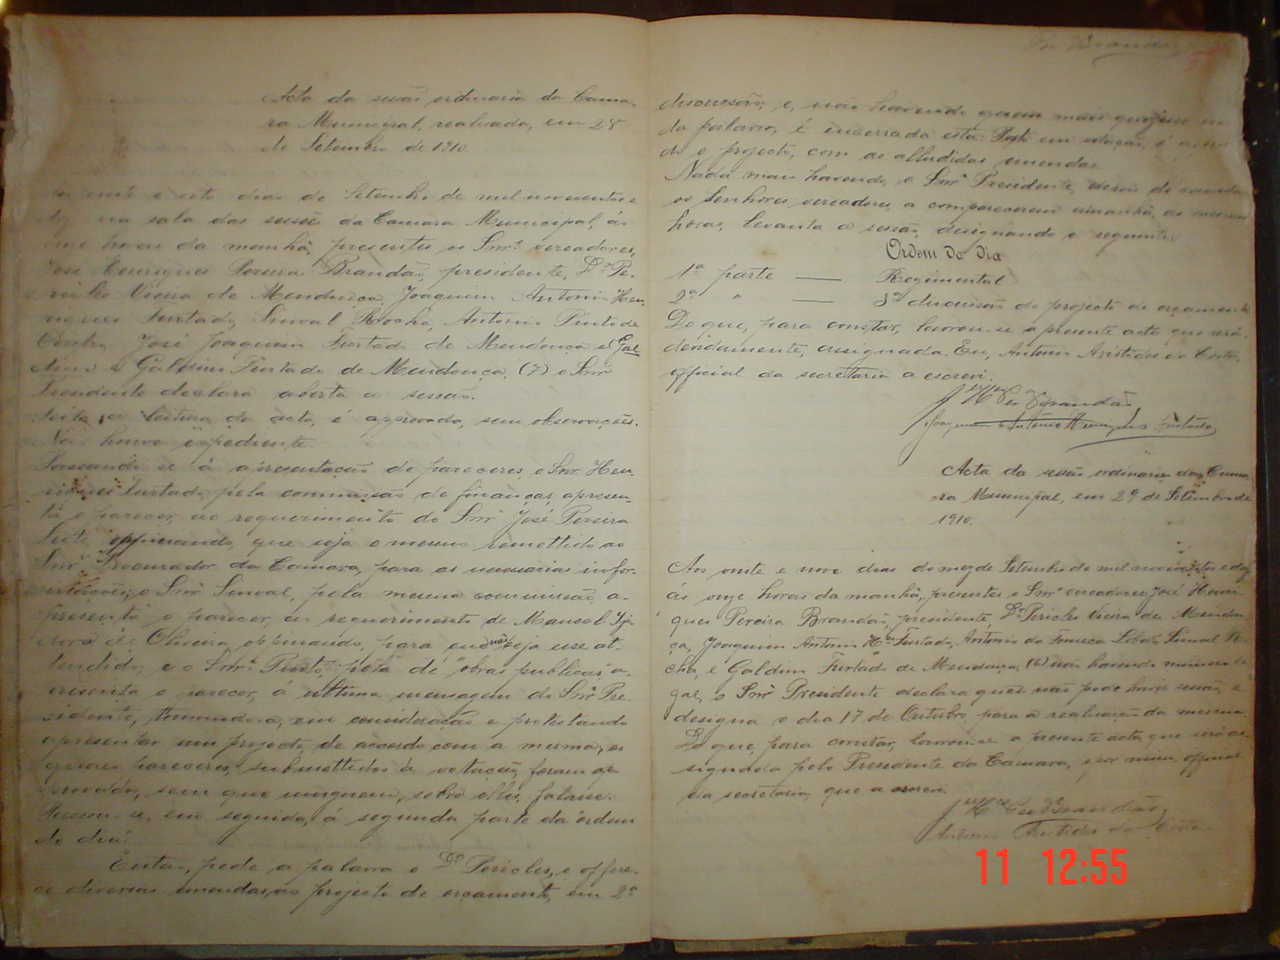 Acta da sessão ordinaria da Cama-
ra Municipal, realisada, em 28
de Setembro de 1910
vinte e oito dias de Setembro de mil novecentos e
na sala das sessões da Camara Municipal, ás
onze horas da manhã, presentes os Snrs. vereadores,
José Henriques Pereira Brandão, presidente, Dr. Pe-
Vieira de Mendonça, Joaquim Antonio Hen-
riques Furtado, Sinval Rocha, Antonio Pinto de
José Joaquim Furtado de Mendonça e Gal-
e Galdim Furtado de Mendonça, (7) o Snr
Presidente declara aberta a sessão.
Feita a leitura da acta, é approvada, sem observações.
Não houve expediente.
Passando-se á apresentação de pareceres, o Snr. Hen-
riques Furtado, pela commissão de finanças, apresen-
ta o parecer, ao requerimento do Snr José Pereira
opinando, que seja o mesmo remettido ao
Snr Procurador da Camara, para as necessarias infor-
mações; o Snr Sinval, pela mesma commissão, a-
presenta o parecer, ao requerimento de Manoel
de Oliveira, opinando, para que não seja esse at-
tendido; e o Snr. Pinto, pela de "obras publicas" a-
presenta o parecer, á ultima mensagem do Snr Pre-
sidente, tomando-a, em consideração e protestando
apresentar um projecto, de accordo com a mesma, os
quaes pareceres, submettidos á votação, foram ap-
provados, sem que ninguem, sobre elles, falasse.
Passou-se, em seguida, á segunda parte da ordem
do dia.
Então, pede a palavra o Dr Pericles, e offere-
ce diversas emendas, ao projecto de orçamento, em 2ª
Per Brandão
discussão; e, não havendo quem mais
da palavra, é encerrada esta. Posto em votação, é
o projecto, com as alludidas emendas.
Nada mais havendo, o Snr Presidente, depois de convidar
os Senhores vereadores, a comparecerem amanhã, ás mesmas
horas, levanta a sessão, designando o seguinte:
Ordem do dia
1ª parte — Regimental
2ª " — 3ª discussão do projecto de orçamento
Do que, para constar, lavrou-se a presente acta que será,
devidamente, assignada. Eu, Antonio Aristides da Costa,
official da secretaria a escrevi.
J Hes Per Brandão
Joaquim Antonio Henriques Furtado
Acta da sessão ordinaria da Cama-
ra Municipal, em 29 de Setembro de
1910.
Aos vinte e nove dias do mez de Setembro de mil novecentos e dez,
ás onze horas da manhã, presentes os Snrs vereadores José Henri-
ques Pereira Brandão, presidente, Dr. Pericles Vieira de Mendon-
ça, Joaquim Antonio Hes Furtado, Antonio da Fonseca Lobato, Sinval Ro-
cha, e Galdim Furtado de Mendonça, (6) não havendo numero le-
gal, o Snr Presidente declara que não pode haver sessão, e
designa o dia 17 de Outubro, para a realisação da mesma.
Do que, para constar, lavrou-se a presente acta, que será as-
signada pelo Presidente da Camara, e por mim, official
da secretaria, que a escrevi.
J Hes Per Brandão,
Antonio Aristides da Costa
11 12:55